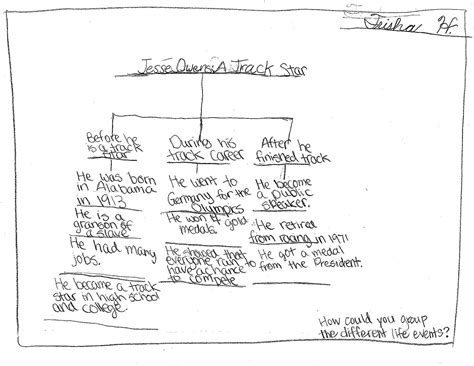 Trisha H.
Jesse Owens: A Track Star
Before he
is a track
star
He was born
in Alabama
in 1913
He is a
grandson of
a slave
He had many
jobs.
He became a track
star in high school
and college
During his
track career
He went to
Germany for the
Olympics
He won 4 gold
medals.
He showed that
everyone
have a chance
to compete
After he
finished track
He become
a public
speaker.
He retired
from racing in 1971
He got a medal
from the President.
How could you group
the different life events?